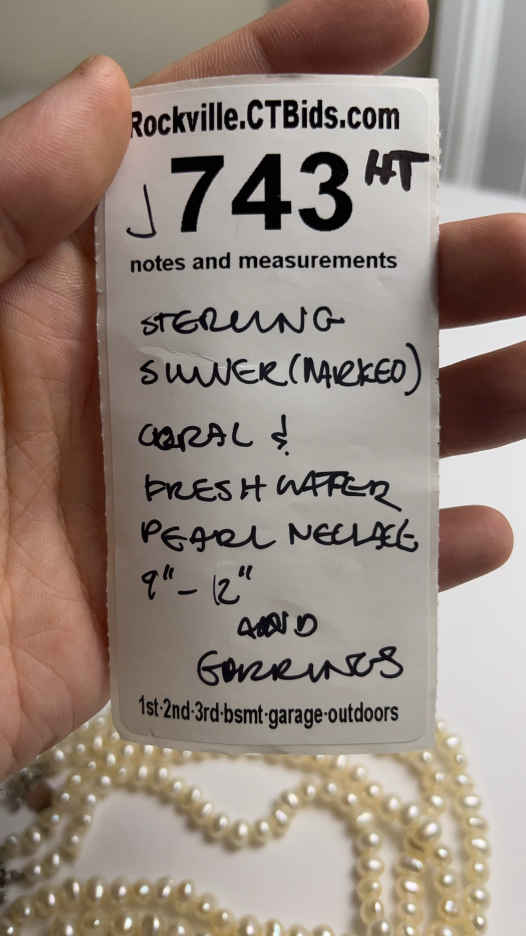 Rockville.CTBids.com
J 743 HT
notes and measurements
STERLING
SILVER (MARKED)
CORAL &
FRESH WATER
PEARL NECLACE
9" - 12"
AND
EARRINGS
1st-2nd-3rd-bsmt-garage-outdoors